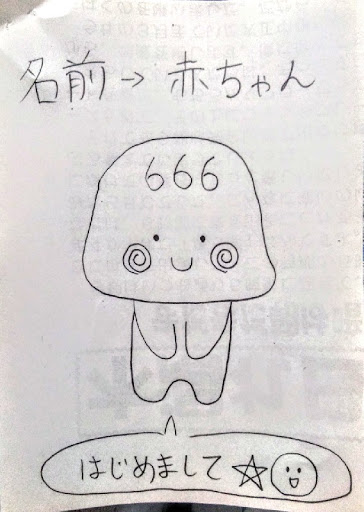 名前→赤ちゃん
666
はじめまして☆